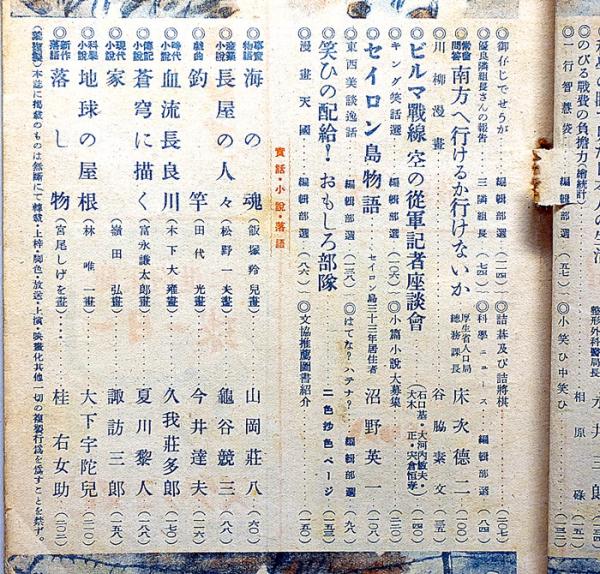 のびる戰費の負擔力(繪統計)
◎一行智慧袋 編輯部選 (五七) ◎小笑ひ中笑ひ 相原 (三二)
◎御存じでせうが 編輯部選 (二四) ◎詰碁及び詰將棋 (二〇七)
◎優良隣組長さんの報告 三隣組長 (七四) ◎科學ニュース 編輯部選 (八四)
常會問答 南方へ行けるか行けないか 厚生省人口局總務課長 床次德二 (一〇〇)
◎川柳漫畫 谷脇素文 (一三五)
ビルマ戰線 空の從軍記者座談會 石口基・大河內敏夫・大木正・宍倉恒孝 (一四〇)
◎キング笑話選 編輯部選 (一〇六) ◎小篇小說大募集 (二三〇)
セイロン島物語 セイロン島三十三年居住者 沼野英一 (一〇八)
◎東西美談逸話 編輯部選 (一三八) ◎はてな?ハテナ? 編輯部選 (九八)
笑ひの配給!おもしろ部隊 二色抄色ページ (一五三)
◎漫畫天國 編輯部選 (八六) ◎文協推薦圖書紹介 (五三)
實話・小說・落語
事實物語 海の魂 (飯塚羚兒畫) 山岡莊八 (六〇)
產業小說 長屋の人々 (松野一夫畫) 龜谷競三 (八八)
戲曲 釣竿 (田代光畫) 今井達夫 (一一六)
時代小說 血流長良川 (木下大雍畫) 久我莊多郎 (一七〇)
傳記小說 蒼穹に描く (富永謙太郎畫) 夏川黎人 (一四二)
現代小說 家 (嶺田弘畫) 諏訪三郎 (一五八)
科學小說 地球の屋根 (林唯一畫) 大下宇陀兒 (二二〇)
新作落語 落し物 (宮尾しげを畫) 桂右女助 (二〇二)
(禁複製)本誌に揭載のものは無斷にて轉載・上梓・脚色・放送・上演・映畫化其他一切の複製行爲を爲すことを禁ず。